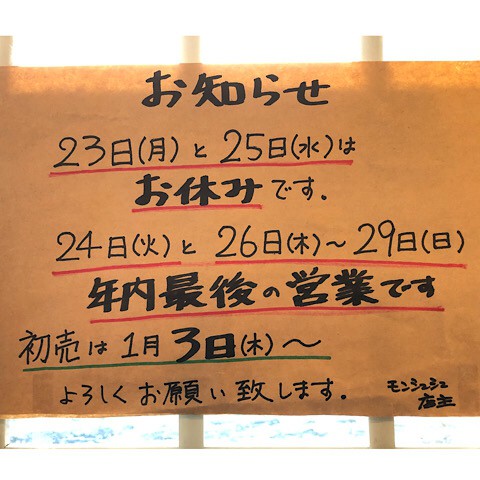 お知らせ
23日(月)と25日(水)は
お休みです.
24日(火)と26日(木)～29日(日)
年内最後の営業です
初売は1月3日(木)～
よろしくお願い致します。
モンシュシュ
店主